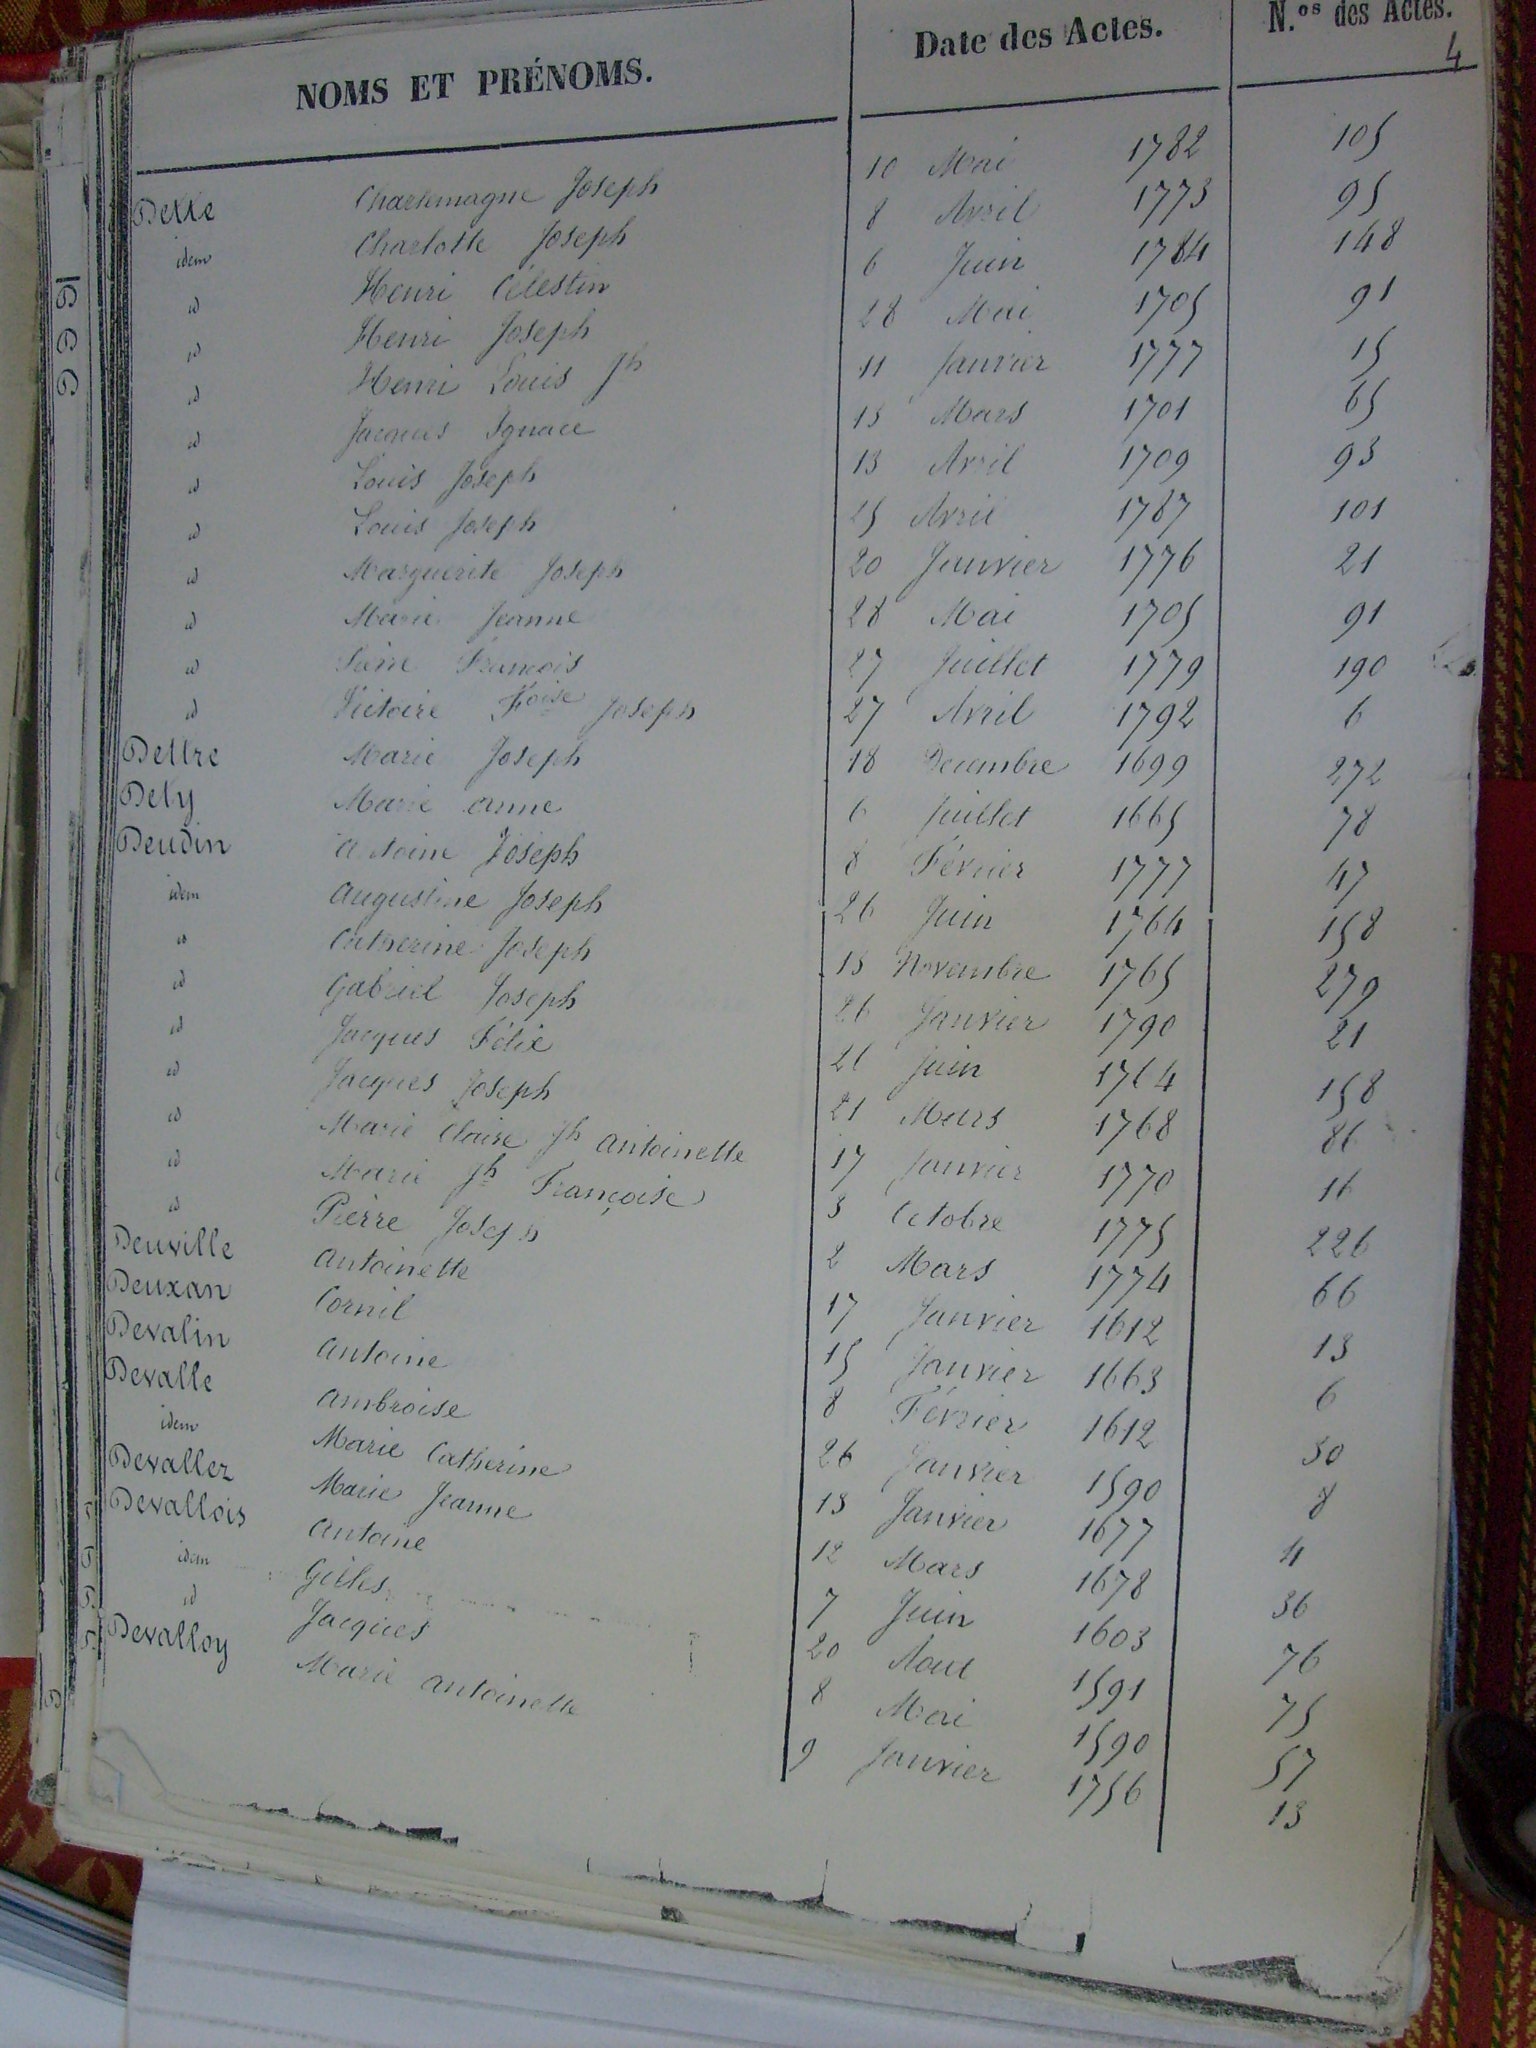 NOMS ET PRÉNOMS. Date des Actes. N.os des Actes.
4
Dette Charlemagne Joseph 10 Mai 1782 105
idem Charlotte Joseph 8 Avril 1773 95
id Henri Célestin 6 Juin 1784 148
id Henri Joseph 28 Mai 1705 91
id Henri Louis Jh 11 Janvier 1777 15
id Jacques Ignace 15 Mars 1701 65
id Louis Joseph 13 Avril 1709 93
id Louis Joseph 25 Avril 1787 101
id Marguerite Joseph 20 Janvier 1776 21
id Marie Jeanne 28 Mai 1705 91
id Pierre François 27 Juillet 1779 190
id Victoire Foise Joseph 27 Avril 1792 6
Dettre Marie Joseph 18 Decembre 1699 272
Dety Marie anne 6 Juillet 1665 78
Deudin Antoine Joseph 8 Février 1777 47
idem Augustine Joseph 26 Juin 1764 158
id Catherine Joseph 15 Novembre 1765 279
id Gabriel Joseph 26 Janvier 1790 21
id Jacques Félix 26 Juin 1764 158
id Jacques Joseph 21 Mars 1768 86
id Marie Claire Jh antoinette 17 Janvier 1770 16
id Marie Jh Françoise 3 Octobre 1775 226
id Pierre Joseph 2 Mars 1774 66
Deuville Antoinette 17 Janvier 1612 13
Deuxan Cornil 15 Janvier 1663 6
Devalin Antoine 8 Février 1612 30
Devalle Ambroise 26 Janvier 1590 8
idem Marie Catherine 13 Janvier 1677 4
Devallez Marie Jeanne 12 Mars 1678 36
Devallois Antoine 7 Juin 1603 76
idem Gilles 20 Aout 1591 75
id Jacques 8 Mai 1590 57
Devalloy Marie antoinette 9 Janvier 1756 13